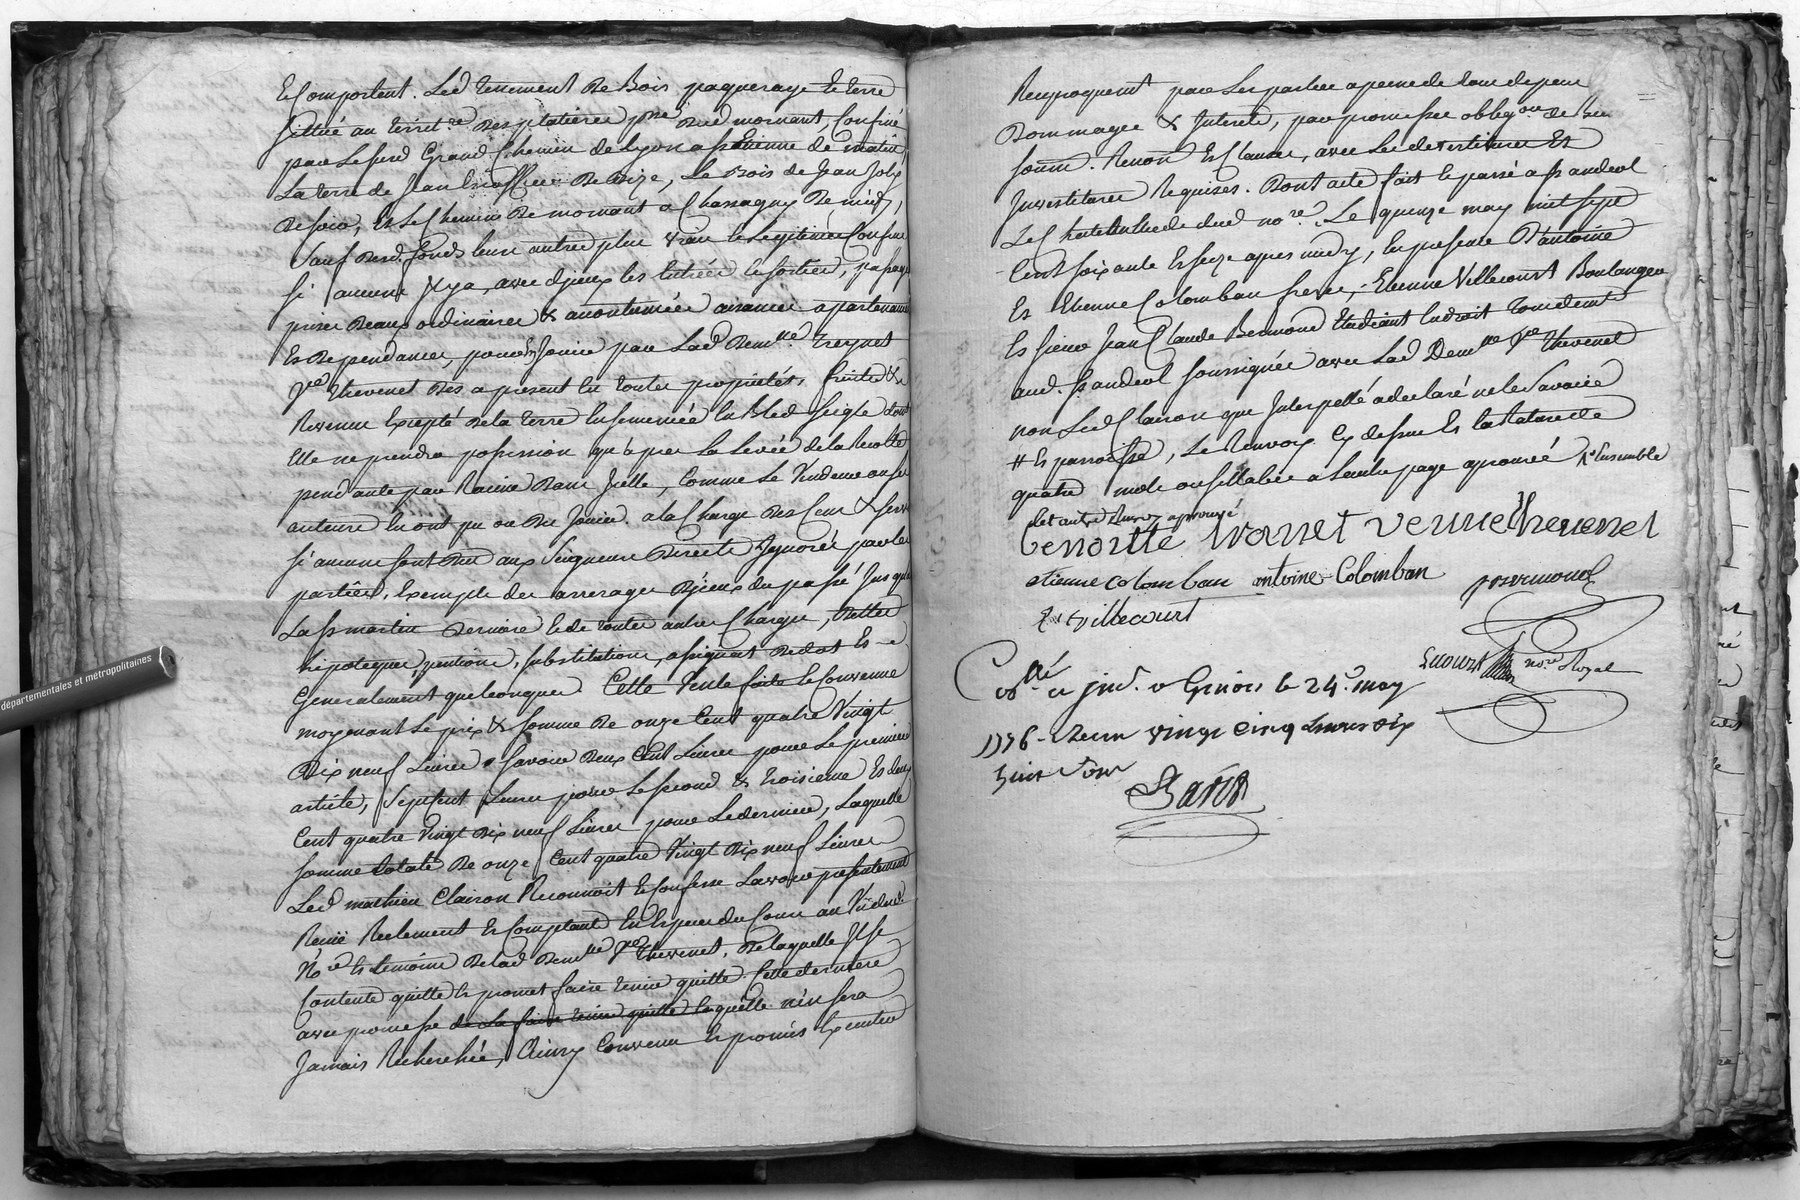 Et Comportent. Led tenement de Bois paquerage et terre
sittué au territ.re des platieres p.sse dud mornant, Confiné
par Le susd Grand Chemin de Lyon a st Etienne de matin,
La terre de Jean de Bize, Le Bois de Jean Joly
De soir, Et Le Chemin de mornant a Chassagny De midy,
Sauf desd. fonds leurs autres plus vrais et Legitimes Confins
si aucuns Il y a, avec d'yceux les Entrées et sorties, passages
prises Deaux ordinaires & accoutumées aisances apartenances
Et Dependances, pour En Jouir par Lad Dem.lle
v.ve Thevenet Des a present En toutes proprietés, fruits &
Revenus Excepté De la terre Ensemencée En Bled seigle dont
Elle ne prendra possession qu'aprez La Levée de la Recolte
pendante par Racine Dans Icelle, Comme Le Vendeur ou ses
auteurs En ont pu ou Du Jouir. a la Charge Des Cens & servis
si aucuns sont Dus aux Seigneurs Directs Ignorés par les
parties, Exempte des arrerages D'yceux du passé Jusqu'a
La st martin Derniere Et de toutes autres Charges, Dettes
hipoteques, pentions, substitutions, Et
Generalement quelconques. Cette Vente faite Et Convenue
moyenant Le prix & somme De onze Cent quatre Vingt
Dix neuf Livres Savoir Deux Cent Livres pour Le premier
article, Sept Cent Livres pour Le second & troisieme Et deux
Cent quatre Vingt Dix neuf Livres pour Le dernier, Laquelle
somme totale De onze Cent quatre Vingt Dix neuf Livres
Led mathieu Clairon Reconnoit Et Confesse L'avoir presentement
Reçu Reelement Et Comptant En Especes du Cours au Vu dud.
No.re Et temoins De lad Dem.lle v.ve Thevenet, De laquelle Il se
Contente quitte Et promet faire tenir quitte Cette derniere
avec promesse de la faire tenir quitte Et qu'elle n'en sera
Jamais Recherchée, Ainsy Convenu Et promis Executer
Reciproquem.t par Les parties a peine de tous depens
Dommages & Interets, par promesse oblig.on de Biens
soum. Renon. Et Clauses, avec Les devestitures Et
Investitures Requises. Dont acte fait Et passé a st andeol
Le Chateau Etude dud no.re. Le quinze may mil sept
Cent soixante Et seize apres midy, En presence D'antoine
Et Etienne Colomban freres, Etienne Villecourt Boulanger
Et sieur Jean Claude Bermond Etudiant En droit tous demt
aud. st andeol soussignés avec Lad Dem.lle v.ve Thevenet
non Led Clairon qui Interpellé a declaré ne le Savoir
# Et parroisse, Le Renvoy Cy dessus Et La Rature de
quatre mots ou sillabes a L'autre page aprouvé Ensemble
Let autre Renvoy aprouvé
Benoitte veuve Thevenet
etienne colomban antoine Colomban
Et villecourt
no.re Royal
Con.lé a Givors le 24. may
1776. Recu vingt cinq Livres dix
huit sous